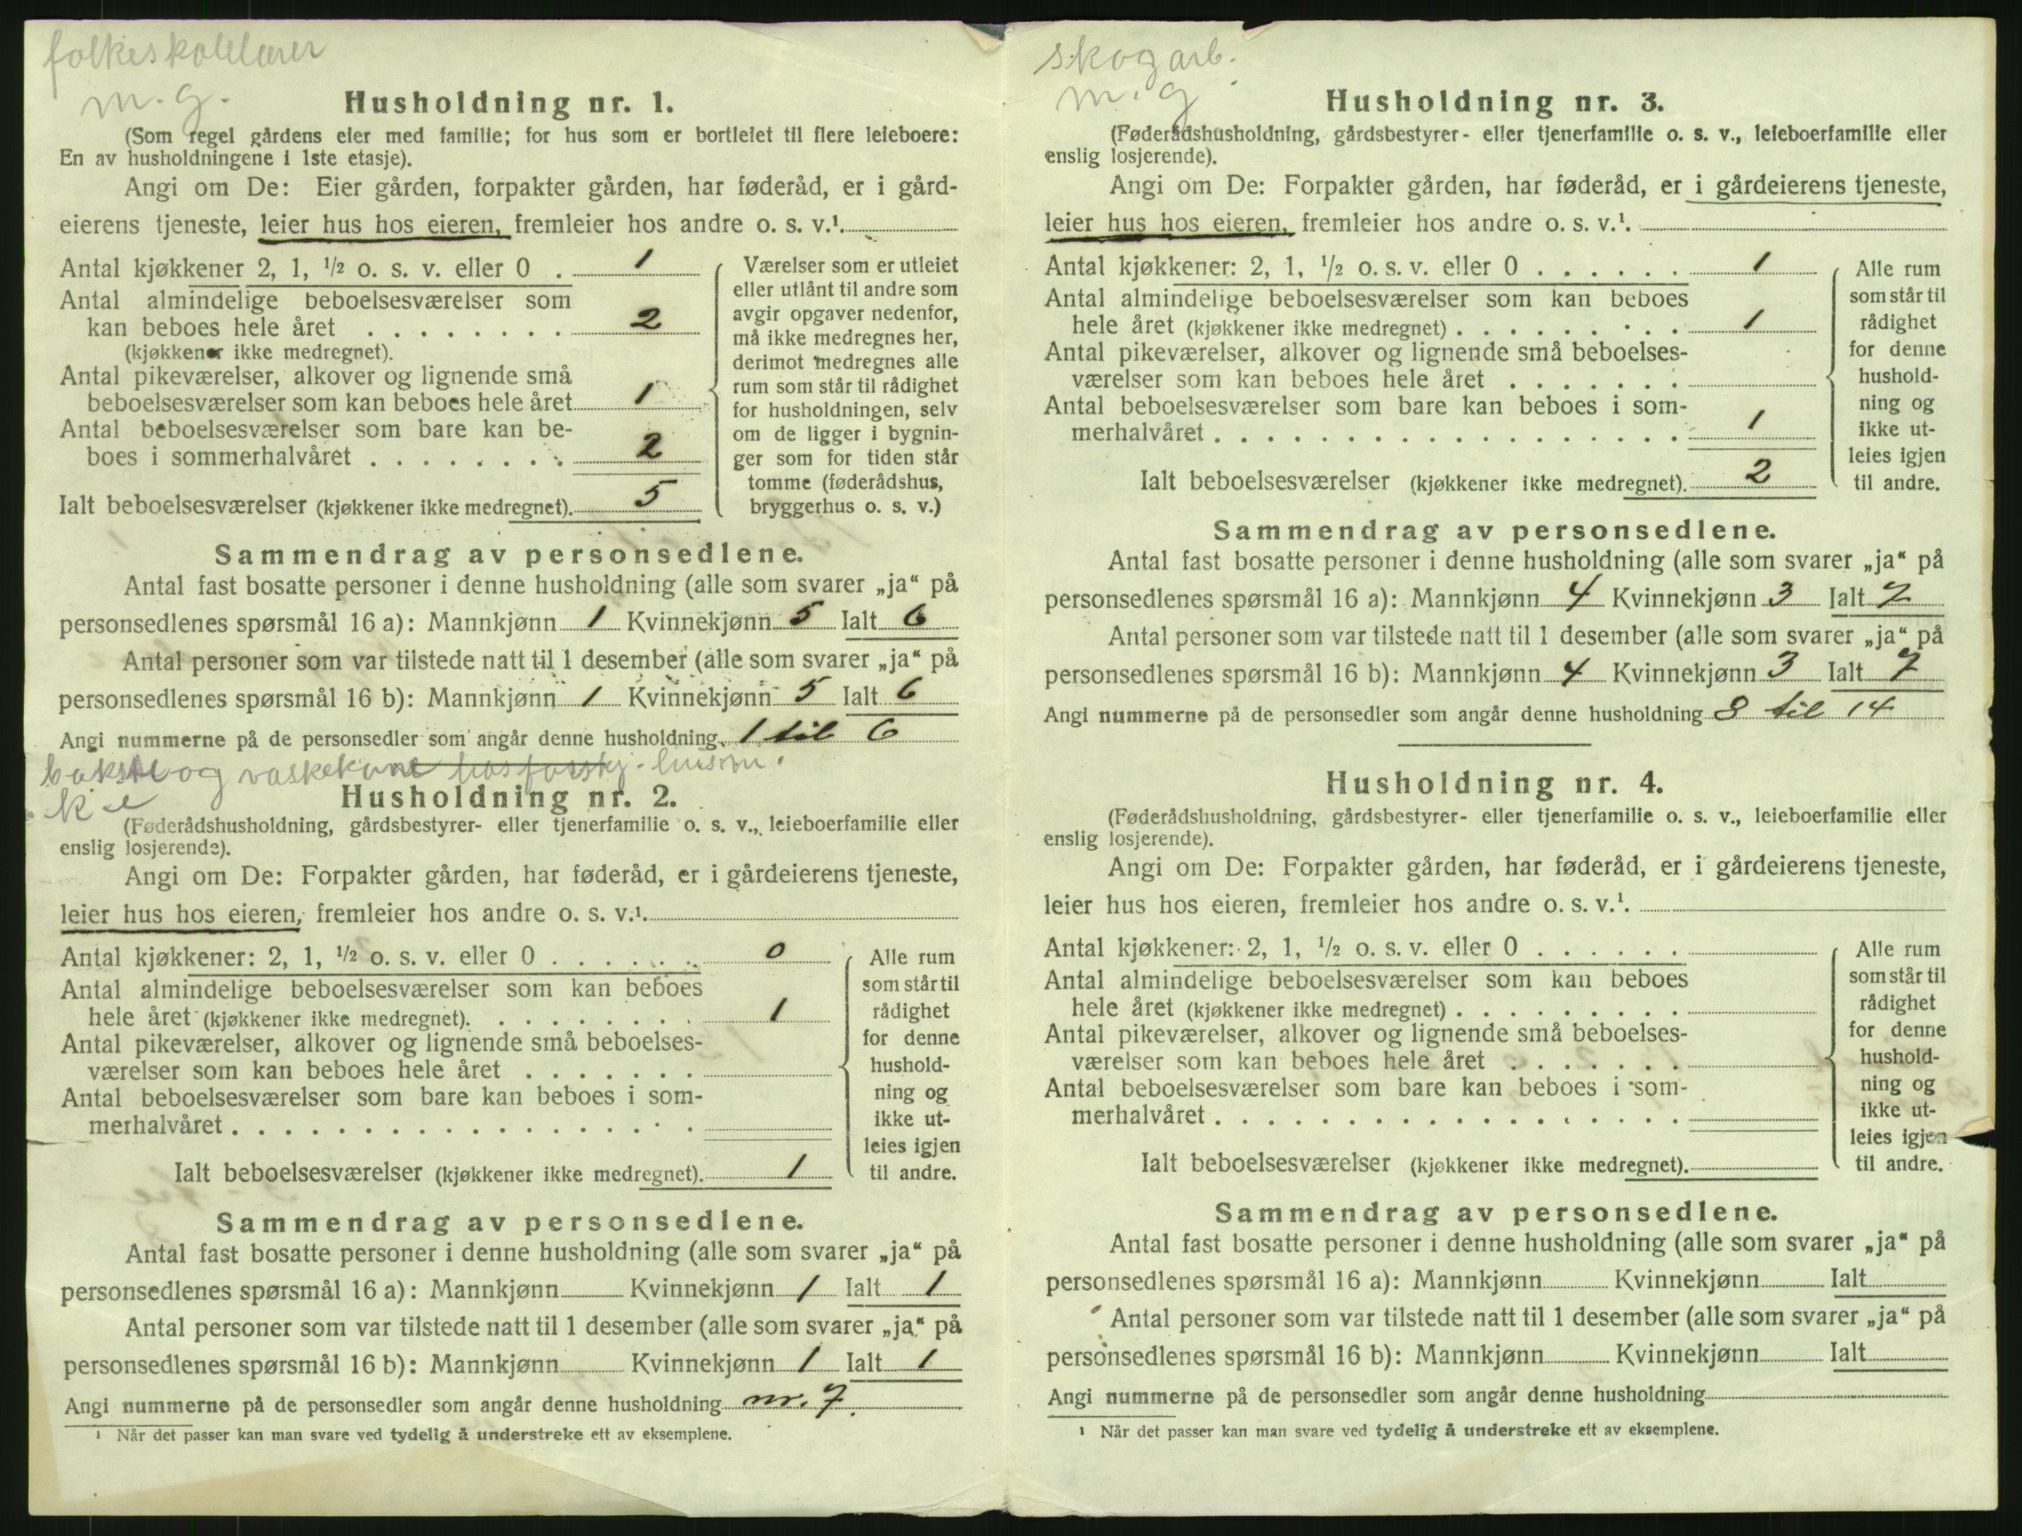 folkeskolelærer
m. g.
Husholdning nr. 1.
(Som regel gårdens eier med familie; for hus som er bortleiet til flere leieboere:
En av husholdningene i 1ste etasje).
Angi om De: Eier gården, forpakter gården, har føderåd, er i gård-
eierens tjeneste, leier hus hos eieren, fremleier hos andre o. s. v.¹.
Antal kjøkkener 2, 1, ½ o. s. v. eller 0 . 1
Antal almindelige beboelsesværelser som
kan beboes hele året . . . . . . . . 2
(kjøkkener ikke medregnet).
Antal pikeværelser, alkover og lignende små
beboelsesværelser som kan beboes hele året 1
Antal beboelsesværelser som bare kan be-
boes i sommerhalvåret . . . . . . . . 2
Ialt beboelsesværelser (kjøkkener ikke medregnet). 5
Værelser som er utleiet
eller utlånt til andre som
avgir opgaver nedenfor,
må ikke medregnes her,
derimot medregnes alle
rum som står til rådighet
for husholdningen, selv
om de ligger i bygnin-
ger som for tiden står
tomme (føderådshus,
bryggerhus o. s. v.)
Sammendrag av personsedlene.
Antal fast bosatte personer i denne husholdning (alle som svarer „ja“ på
personsedlenes spørsmål 16 a): Mannkjønn 1 Kvinnekjønn 5 Ialt 6
Antal personer som var tilstede natt til 1 desember (alle som svarer „ja“ på
personsedlenes spørsmål 16 b): Mannkjønn 1 Kvinnekjønn 5 Ialt 6
Angi nummerne på de personsedler som angår denne husholdning. 1 til 6
og vaskekone
Husholdning nr. 2.
(Føderådshusholdning, gårdsbestyrer- eller tjenerfamilie o. s. v., leieboerfamilie eller
enslig losjerende).
Angi om De: Forpakter gården, har føderåd, er i gårdeierens tjeneste,
leier hus hos eieren, fremleier hos andre o. s. v.¹.
Antal kjøkkener: 2, 1, ½ o. s. v. eller 0 . . . . . . 0
Antal almindelige beboelsesværelser som kan beboes
hele året (kjøkkener ikke medregnet). . . . . . . . . 1
Antal pikeværelser, alkover og lignende små beboelses-
værelser som kan beboes hele året . . . . . . .
Antal beboelsesværelser som bare kan beboes i som-
merhalvåret . . . . . . . . . . . . . . . . . .
Ialt beboelsesværelser (kjøkkener ikke medregnet). 1
Alle rum
som står til
rådighet
for denne
hushold-
ning og
ikke ut-
leies igjen
til andre.
Sammendrag av personsedlene.
Antal fast bosatte personer i denne husholdning (alle som svarer „ja“ på
personsedlenes spørsmål 16 a): Mannkjønn Kvinnekjønn 1 Ialt 1
Antal personer som var tilstede natt til 1 desember (alle som svarer „ja“ på
personsedlenes spørsmål 16 b): Mannkjønn Kvinnekjønn 1 Ialt 1
Angi nummerne på de personsedler som angår denne husholdning nr. 7
¹ Når det passer kan man svare ved tydelig å understreke ett av eksemplene.
skogarb.
m. g
Husholdning nr. 3.
(Føderådshusholdning, gårdsbestyrer- eller tjenerfamilie o. s. v., leieboerfamilie eller
enslig losjerende).
Angi om De: Forpakter gården, har føderåd, er i gårdeierens tjeneste,
leier hus hos eieren, fremleier hos andre o. s. v.¹.
Antal kjøkkener: 2, 1, ½ o. s. v. eller 0 . . . . . . 1
Antal almindelige beboelsesværelser som kan beboes
hele året (kjøkkener ikke medregnet) . . . . . . . . . 1
Antal pikeværelser, alkover og lignende små beboelses-
værelser som kan beboes hele året . . . . . . .
Antal beboelsesværelser som bare kan beboes i som-
merhalvåret . . . . . . . . . . . . . . . . . . 1
Ialt beboelsesværelser (kjøkkener ikke medregnet). 2
Alle rum
som står til
rådighet
for denne
hushold-
ning og
ikke ut-
leies igjen
til andre.
Sammendrag av personsedlene.
Antal fast bosatte personer i denne husholdning (alle som svarer „ja“ på
personsedlenes spørsmål 16 a): Mannkjønn 4 Kvinnekjønn 3 Ialt 7
Antal personer som var tilstede natt til 1 desember (alle som svarer „ja“ på
personsedlenes spørsmål 16 b): Mannkjønn 4 Kvinnekjønn 3 Ialt 7
Angi nummerne på de personsedler som angår denne husholdning 8 til 14
Husholdning nr. 4.
(Føderådshusholdning, gårdsbestyrer- eller tjenerfamilie o. s. v., leieboerfamilie eller
enslig losjerende).
Angi om De: Forpakter gården, har føderåd, er i gårdeierens tjeneste,
leier hus hos eieren, fremleier hos andre o. s. v.¹.
Antal kjøkkener: 2, 1, ½ o. s. v. eller 0 . . . . . .
Antal almindelige beboelsesværelser som kan beboes
hele året (kjøkkener ikke medregnet) . . . . . . . . .
Antal pikeværelser, alkover og lignende små beboelses-
værelser som kan beboes hele året . . . . . . .
Antal beboelsesværelser som bare kan beboes i som-
merhalvåret . . . . . . . . . . . . . . . . . .
Ialt beboelsesværelser (kjøkkener ikke medregnet).
Alle rum
som står til
rådighet
for denne
hushold-
ning og
ikke ut-
leies igjen
til andre.
Sammendrag av personsedlene.
Antal fast bosatte personer i denne husholdning (alle som svarer „ja“ på
personsedlenes spørsmål 16 a): Mannkjønn Kvinnekjønn Ialt
Antal personer som var tilstede natt til 1 desember (alle som svarer „ja“ på
personsedlenes spørsmål 16 b): Mannkjønn Kvinnekjønn Ialt
Angi nummerne på de personsedler som angår denne husholdning
¹ Når det passer kan man svare ved tydelig å understreke ett av eksemplene.